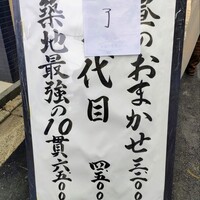 昼のおまかせ 三二〇〇
了
代目 四、五〇〇
築地最強の10貫 六五〇〇